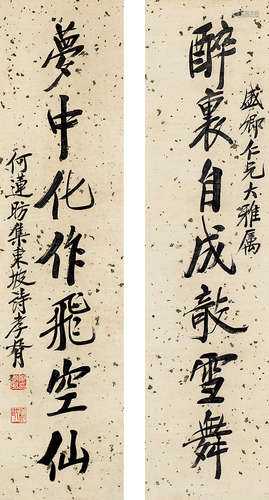 盛鄉仁兄大雅属
醉裏自成敲雪舞
夢中化作飛空仙
何蓮昉集東坡詩孝胥